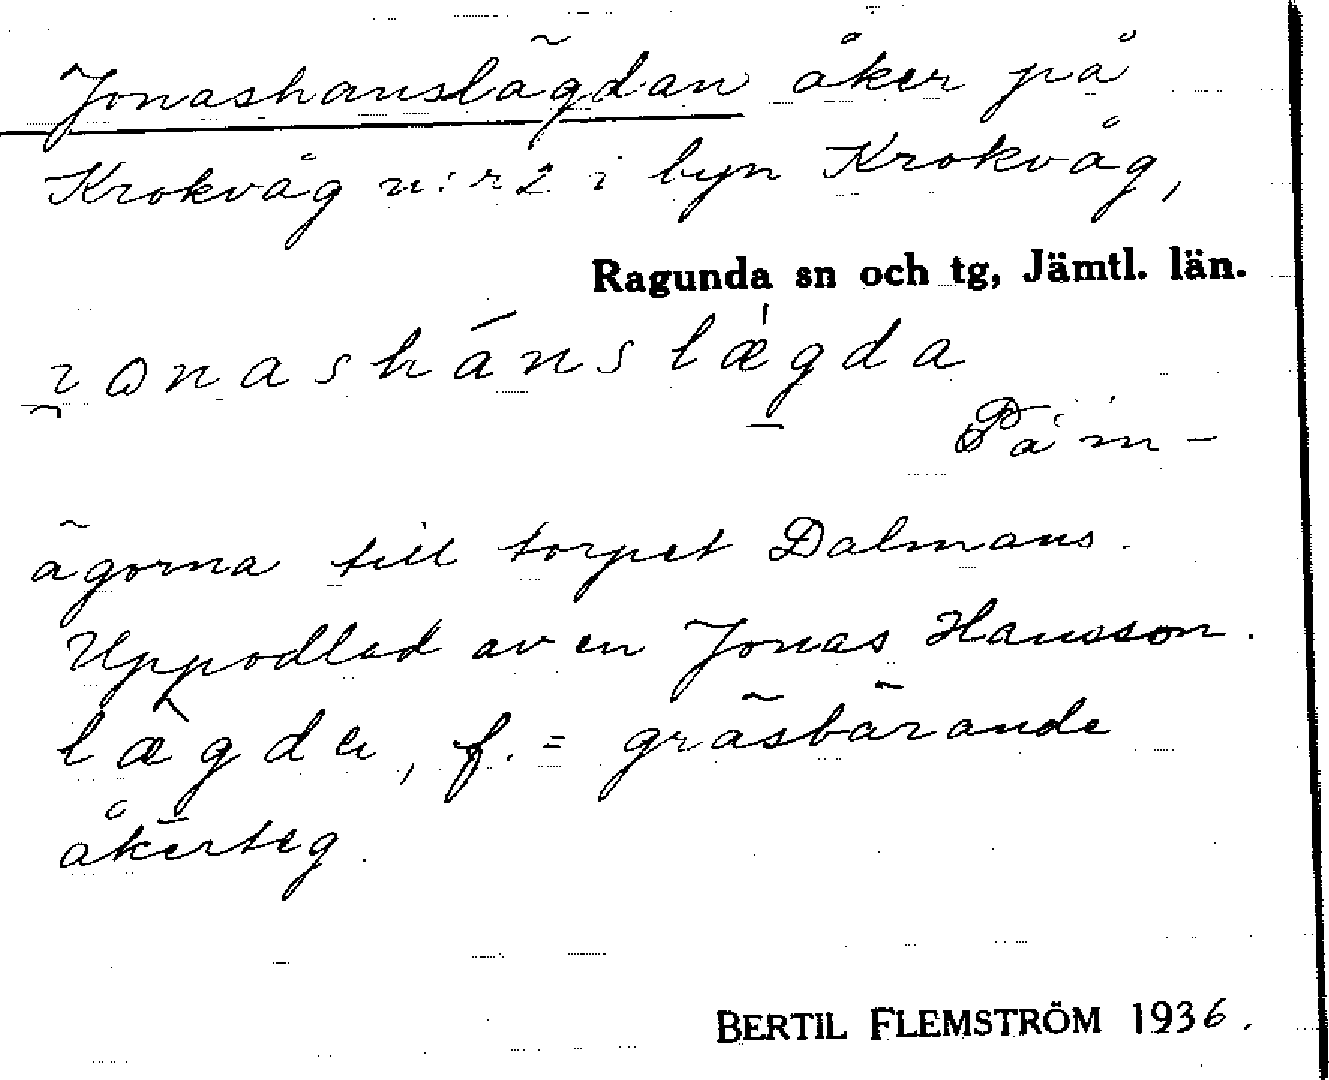 Jonashanslägdan åker på
Krokvåg n:r 2 i byn Krokvåg,
Ragunda sn och tg, Jämtl. län.
i̯onashánslǽgda
På in-
ägorna till torpet Dalmans.
Uppodlad av en Jonas Hansson.
lægda, f. = gräsbärande
åkerteg.
BERTIL FLEMSTRÖM 1936.